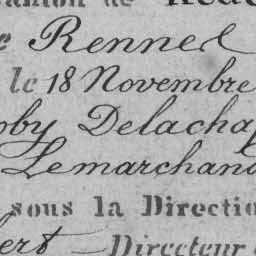 Canton de
e Rennes
le 18 Novembre
oby Delachap
Lemarchand
sous la Directio
bert Directeur